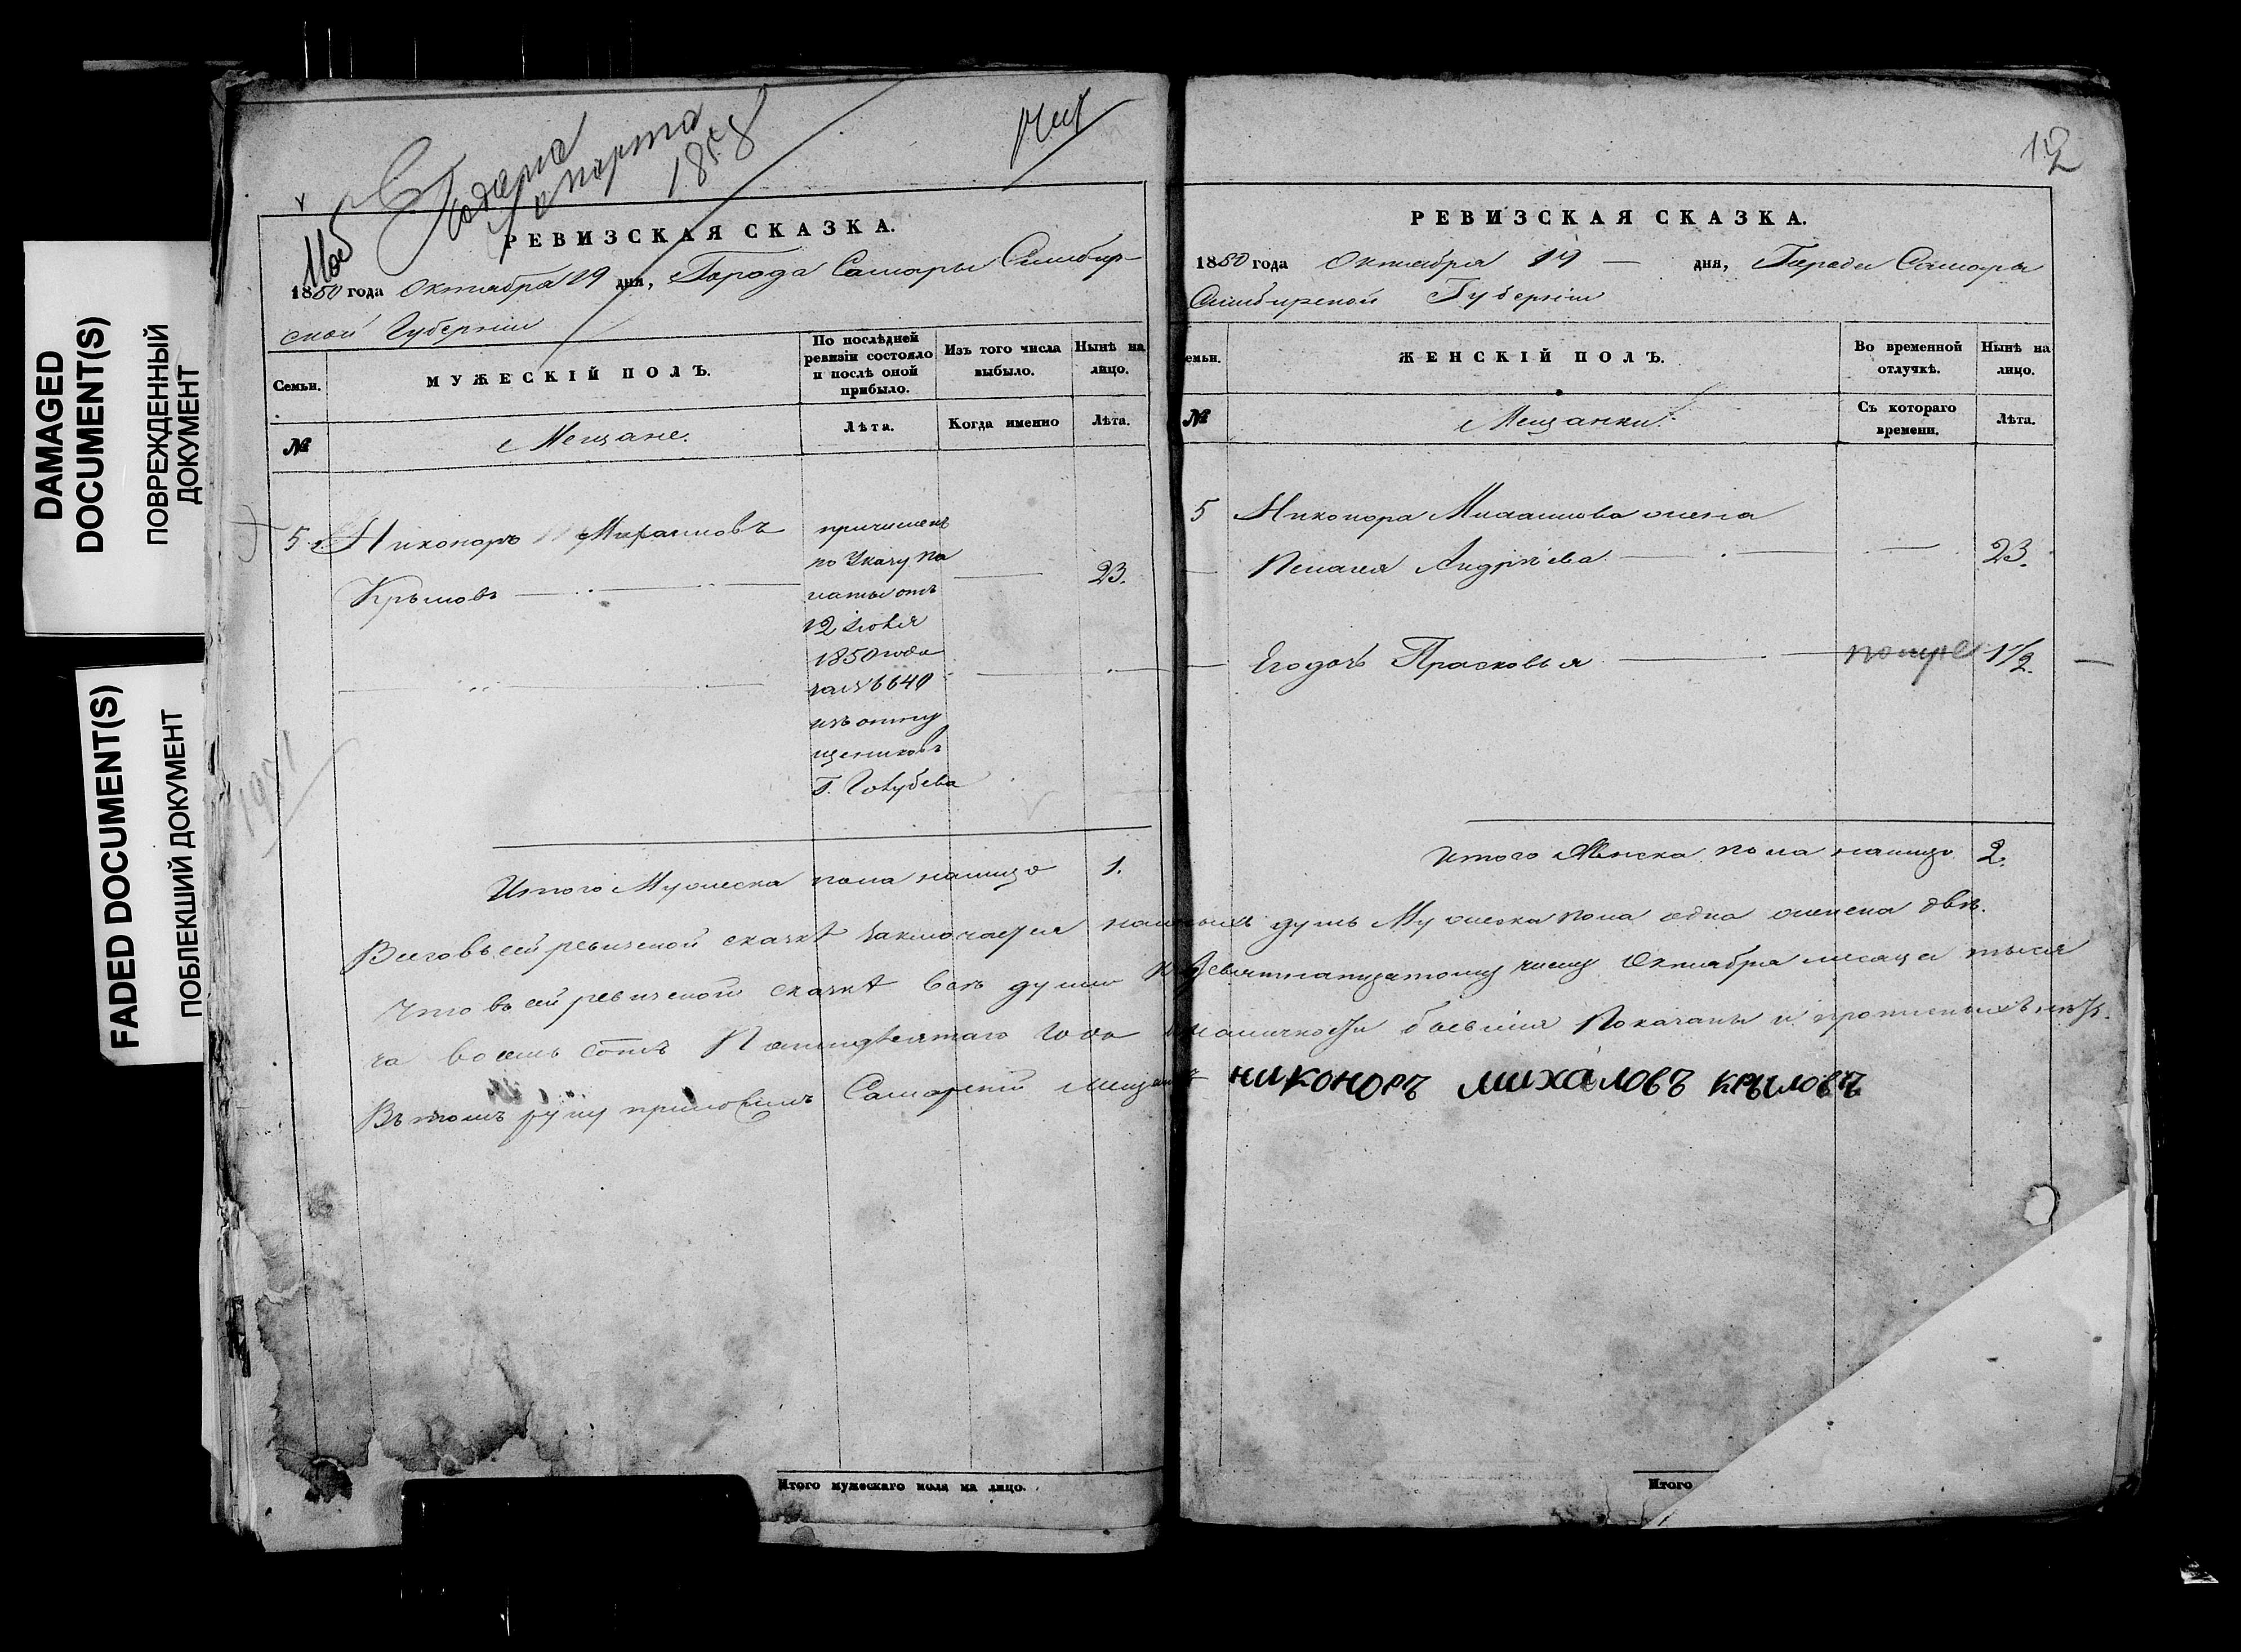 DAMAGED
DOCUMENT(S)
ПОВРЕЖДЕННЫЙ
ДОКУМЕНТ
FADED DOCUMENT(S)
ПОБЛЕКШИЙ ДОКУМЕНТ
Подана
марта
1858
РЕВИЗСКАЯ СКАЗКА.
1850 года Октября 19 дня, Города Самары Симбир-
ской Губернiи
Семьи.
МУЖЕСКIЙ ПОЛЪ.
По послѣдней
ревизiи состояло
и послѣ оной
прибыло.
Изъ того числа
выбыло.
Нынѣ на
лицо.
№
Мещане.
Лѣта.
Когда именно
Лѣта.
5 1. Никоноръ Михаиловъ
Крыловъ
23.
причисленъ
по Указу Па
латы отъ
12 Iюля
1850 года
за № 6640
изъ отпу
щениковъ
Г. Голубева
Итого Мужеска пола налицо 1.
12
РЕВИЗСКАЯ СКАЗКА.
1850 года Октября 19 дня, Города Самары
Симбирской Губернiи
емьи.
ЖЕНСКIЙ ПОЛЪ.
Во временной
отлучкѣ.
Нынѣ на
лицо.
№
Мещанки.
Съ котораго
времени.
Лѣта.
5 Никонора Михаилова жена
Пелагея Андрѣева 23.
Егодочь Прасковья 1½.
Итого Женска пола налицо 2.
Всего въ сей ревизской сказкѣ заключается наличныхъ душъ Мужеска пола одна женска двѣ.
Что въ сей ревизской сказкѣ всѣ души къ девятнатцатому числу Октября месяца тыся
ча восемь сотъ Пятидесятаго года въ наличности бывшiя показаны и
Въ томъ руку приложилъ Самарскiй мещанинъ никоноръ михаловъ крыловъ
Итого мужескаго пола на лицо.
Итого